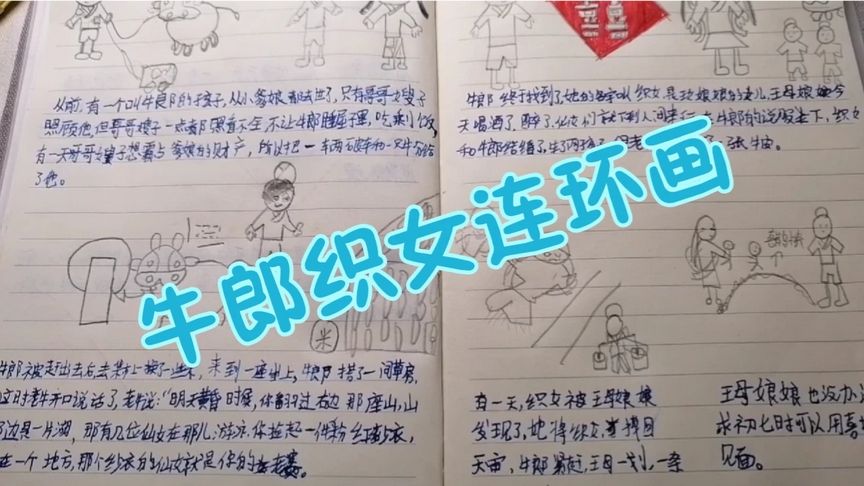 从前,有一个叫牛郎的孩子,从小爹娘都去世了,只有哥哥嫂子
照顾他,但哥哥嫂子一点都照看不全,不让牛郎睡屋子里,吃剩
有一天哥哥嫂子想霸占爹娘的财产,所以把一车两破车和一只牛分给
了他。
米
牛郎被赶出去后,去来到一座山上,牛郎搭了一间草房,
这时老牛开口说话了,老牛说:“明天黄昏时候,你翻过右边那座山,山
边是一片湖,那有几位仙女在那儿游泳,你捡起一件粉红纱衣,
在一个地方,那个纱衣的仙女就是你的老婆。
牛郎终于找到了她的名字叫织女,是王母娘娘的女儿,王母娘娘今
天喝酒了,醉了,仙女们就下到人间来在牛郎的说服之下,织女
和牛郎结婚了,生了两孩子一张牛皮。
牛郎织女连环画
有一天,织女被王母娘娘
发现了,她将织女抓回
天宫,牛郎紧赶,王母一划,一条
王母娘娘也没办法
求初七日时可以用喜
见面。